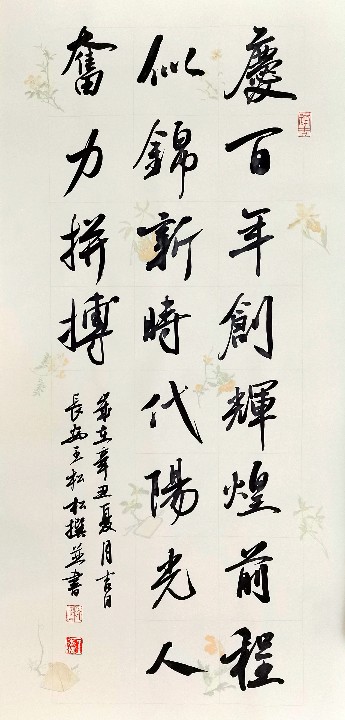 慶百年創輝煌前程
似錦新時代陽光人
奮力拼搏
歲在辛丑夏月吉日
長安王松松撰並書